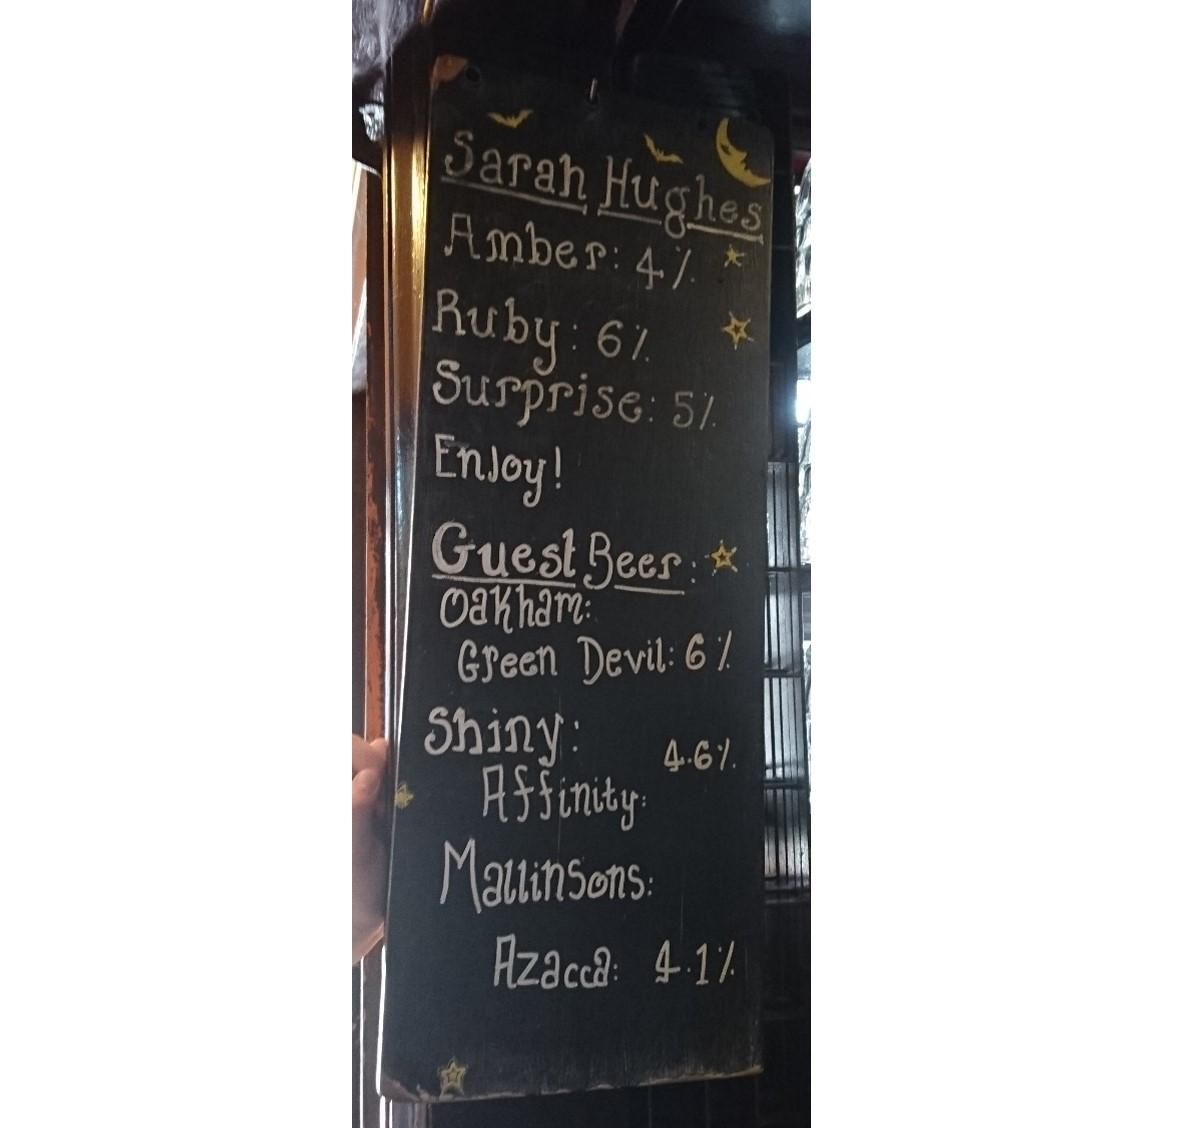 Sarah Hughes
Amber: 4%
Ruby: 6%
Surprise: 5%
Enjoy!
Guest Beer:
Oakham:
Green Devil: 6%
Shiny:
4.6%
Affinity:
Mallinsons:
Azacca: 4.1%